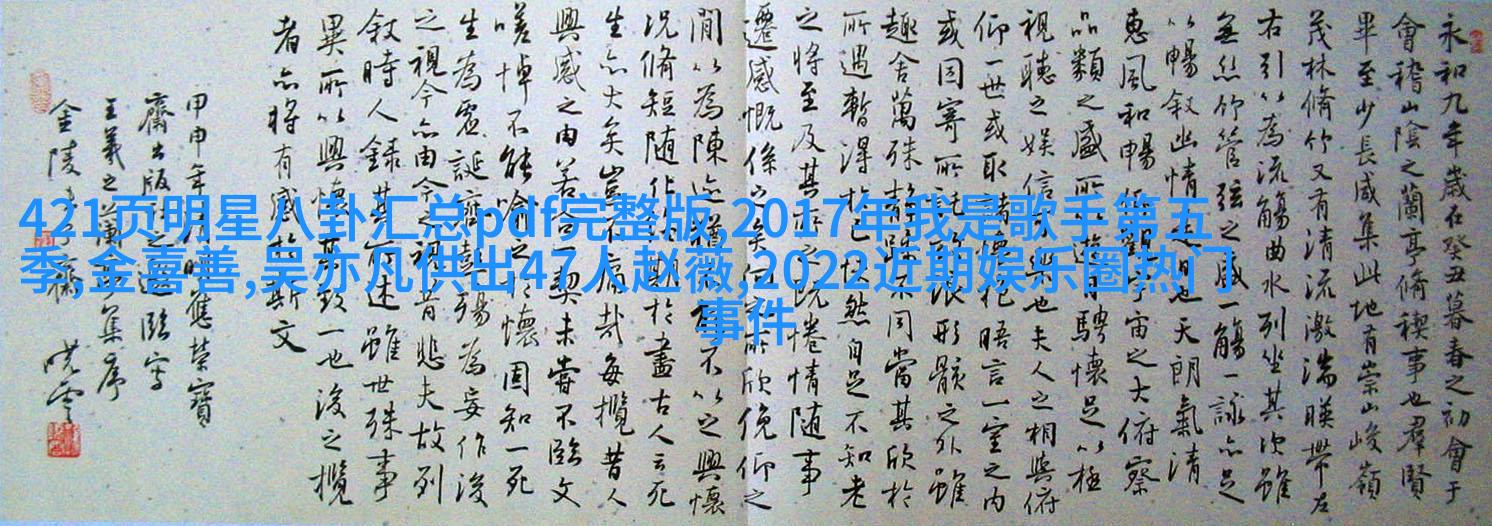 永和九年歲在癸丑暮春之初會于
會稽山陰之蘭亭脩禊事也羣賢
畢至少長咸集此地有崇山峻嶺
茂林脩竹又有清流激湍暎帶左
右引以為流觴曲水列坐其次雖
無絲竹管弦之盛一觴一詠亦足
以暢敘幽情是日也天朗氣清
惠風和暢仰觀宇宙之大俯察
品類之盛所以遊目騁懷足以極
視聽之娛信可樂也夫人之相與俯
仰一世或取諸懷抱晤言一室之內
或因寄所託放浪形骸之外雖
趣舍萬殊靜躁不同當其欣於
所遇暫得於己怏然自足不知老
之將至及其所之既惓情隨事
遷感慨係之矣向之所欣俛仰之
間以為陳迹猶不能不以之興懷
況脩短隨化終期於盡古人云死
生亦大矣豈不痛哉每攬昔人
興感之由若合一契未嘗不臨文
嗟悼不能喻之於懷固知一死
生為虛誕齊彭殤為妄作後
之視今亦由今之視昔悲夫故列
敘時人錄其所述雖世殊事
異所以興懷其致一也後之攬
者亦將有感於斯文
甲申年 榮寶
齋出版社之邀臨寫
王羲之蘭亭集序
金陵
421页明星八卦汇总pdf完整版,2017年我是歌手第五
季,金喜善,吴亦凡供出47人赵薇,2022近期娱乐圈热门
事件